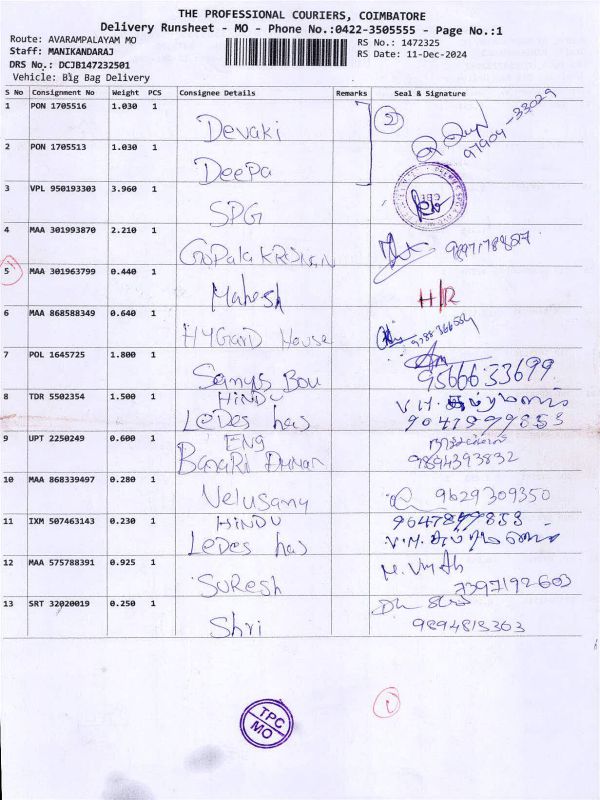 THE PROFESSIONAL COURIERS, COIMBATORE
Delivery Runsheet - MO - Phone No.:0422-3505555 - Page No.:1
Route: AVARAMPALAYAM MO RS No.: 1472325
Staff: MANIKANDARAJ RS Date: 11-Dec-2024
DRS No.: DCJB147232501
Vehicle: Big Bag Delivery
S No Consignment No Weight PCS Consignee Details Remarks Seal & Signature
1 PON 1705516 1.030 1 Devaki 2
97904-33029
2 PON 1705513 1.030 1 Deepa
3 VPL 950193303 3.960 1 SPG
4 MAA 301993870 2.210 1
5 MAA 301963799 0.440 1 Mahesh H/R
6 MAA 868588349 0.640 1 House
7 POL 1645725 1.800 1 95666 33699
8 TDR 5502354 1.500 1 HINDU
LeDes has 9047899853
9 UPT 2250249 0.600 1 ENG
9894393832
10 MAA 868339497 0.280 1 Velusamy 9629309350
11 IXM 507463143 0.230 1 HINDU
LeDes has
12 MAA 575788391 0.925 1 SuResh
7397192603
13 SRT 32020019 0.250 1 Shri 9894813363
TPC
MO
1